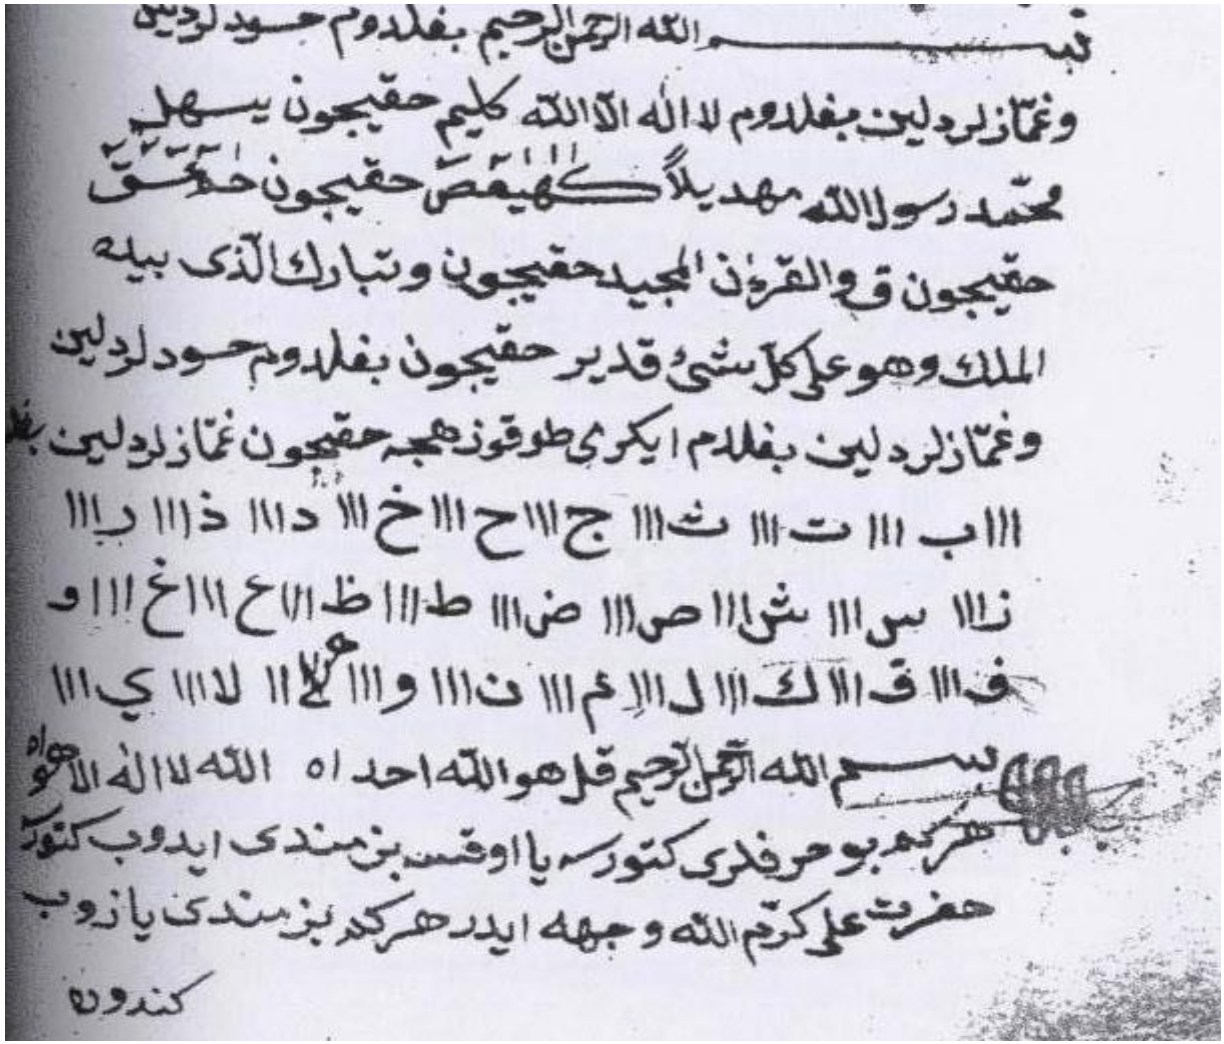 بســـم الله الرحمن الرحيم بغلدوم حسود لردلين
وغمّازلردلين بغلدوم لا اله الّا الله كليم حقيچون يسهل
محمّد رسول الله مهديلاً كهيعص حقيچون حمعسق
حقيچون ق والقرءٰن المجيد حقيچون وتبارك الّذى بيده
الملك وهو على كلّ شئ قدير حقيچون بغلدوم حسود لردلين
وغمّازلردلين بغلدم ايكرى طوقوز همجه حقيچون غمّازلردلين بغلد
ااا ب ااا ت ااا ث ااا ج ااا ح ااا خ ااا د ااا ذ ااا ر ااا
ز ااا س ااا ش ااا ص ااا ض ااا ط ااا ظ ااا ع ااا غ ااا و
ف ااا ق ااا ك ااا ل ااا م ااا ن ااا و ااا ه اا لا ااا ي ااا
بســـم الله الرّحمن الرّحيم قل هو الله احد اه الله لا اله الا هو اه
هركه بو حرفلرى كتورسه يا اوقسه بزمندى ايدوب كتور
حضرت على كرّم الله وجهه ايدر هركه بزمندى يازوب
كندون